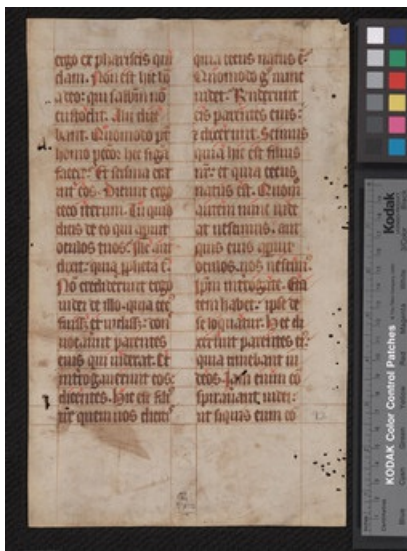 ergo ex phariseis qui
dam. Non est hic hō
a deo: qui sabbm nō
custodit. Alii dice
bant. Quomodo pt̄
homo pctor hec signa
facere. Et scisma erat
int eos. Dicunt ergo
ceco iterum. Tu quid
dicis de eo qui apuit
oculos tuos. Ille aut
dixit: quia ppheta ē.
Nō crediderunt ergo
iudei de illo. quia cecꝰ
fuissꝫ et vidissꝫ: don
vocarunt parentes
eius qui viderat. Et
introgauerunt eos:
dicentes. Hic est filiꝰ
vr̄ quem uos diciti
quia cecus natus ē.
Quomodo gͦ nunc
videt. Rn̄derunt
eis parentes eius:
et dixerunt. Scimus
quia hic est filius
nr̄: et quia cecus
natus est. Quom̄
autem nunc vide
at nescimus. aut
quis eius apuit
oculos. nos nescimꝰ.
Ipm introgate. Eta
tem habet: ipse de
se loquatur. Hec di
xerunt parentes eiꝰ
quia timebant iu
deos. Iam enim cō
spirauant iudei:
ut siquis eum cō
Kodak
KODAK Color Control Patches